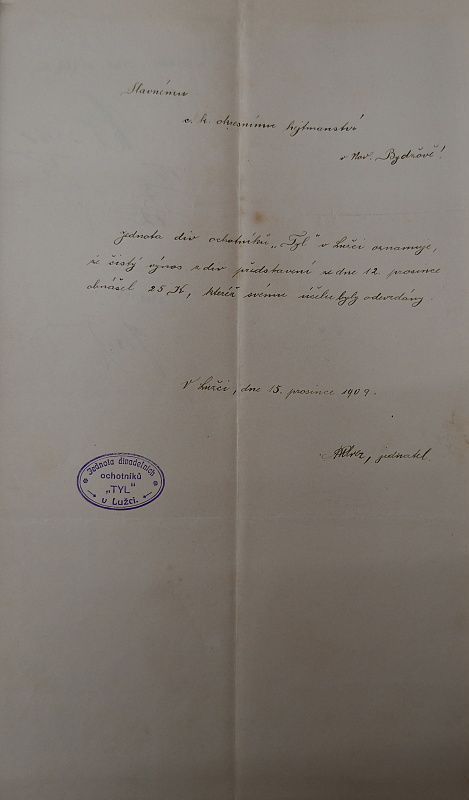 Slavnému
c. k. okresnímu hejtmanství
v Nov. Bydžově!
Jednota div ochotníků „Tyl“ v Lužci oznamuje,
že čistý výnos z div představení ze dne 12. prosince
obnášel 25 K, kteréž svému účelu byly odevzdány.
V Lužci, dne 15. prosince 1909.
, jednatel.
Jednota divadelních
ochotníků
„TYL“
v Lužci.